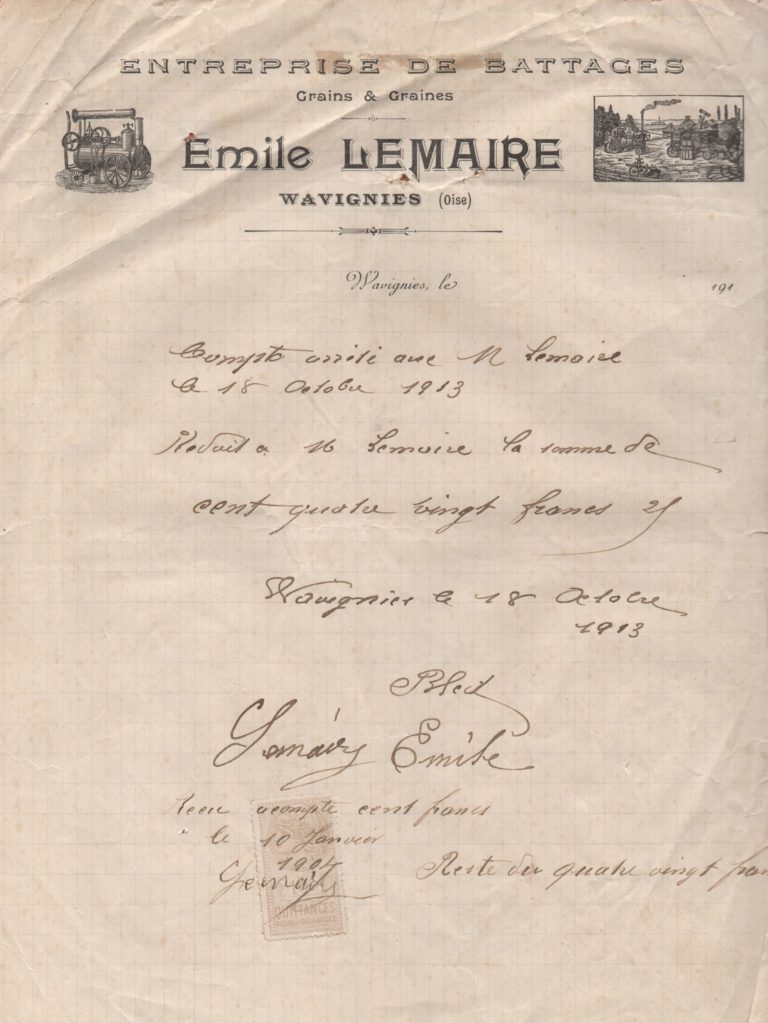 ENTREPRISE DE BATTAGES
Grains & Graines
Émile LEMAIRE
WAVIGNIES (Oise)
Wavignies, le 191
Compte arrêté avec M Lemaire
le 18 Octobre 1913
Redoit a M Lemaire la somme de
cent quatre vingt francs
Wavignies le 18 Octobre
1913
Lemaire Emile
Recu acompte cent francs
le 10 Janvier
Lemaire
Reste du quatre vingt fran
QUITTANCES